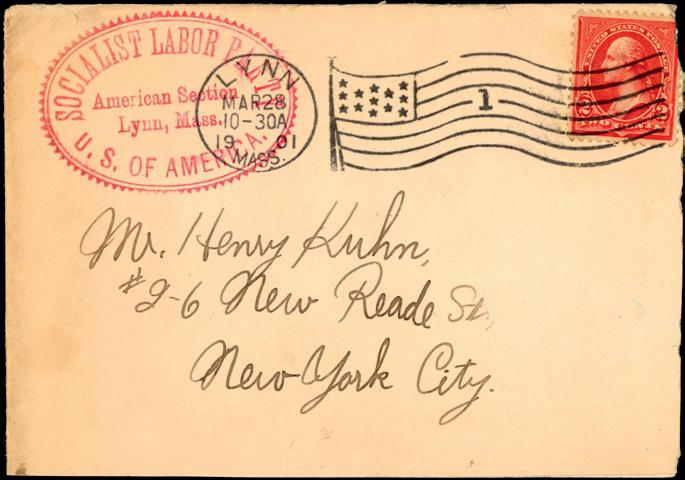 SOCIALIST LABOR PARTY
American Section
Lynn, Mass.
U. S. OF AMERICA.
LYNN
MAR 28
10-30A
19 01
MASS.
1
UNITED STATES POSTAGE
2 2
TWO CENTS
Mr. Henry Kuhn,
#2-6 New Reade St.,
New York City.